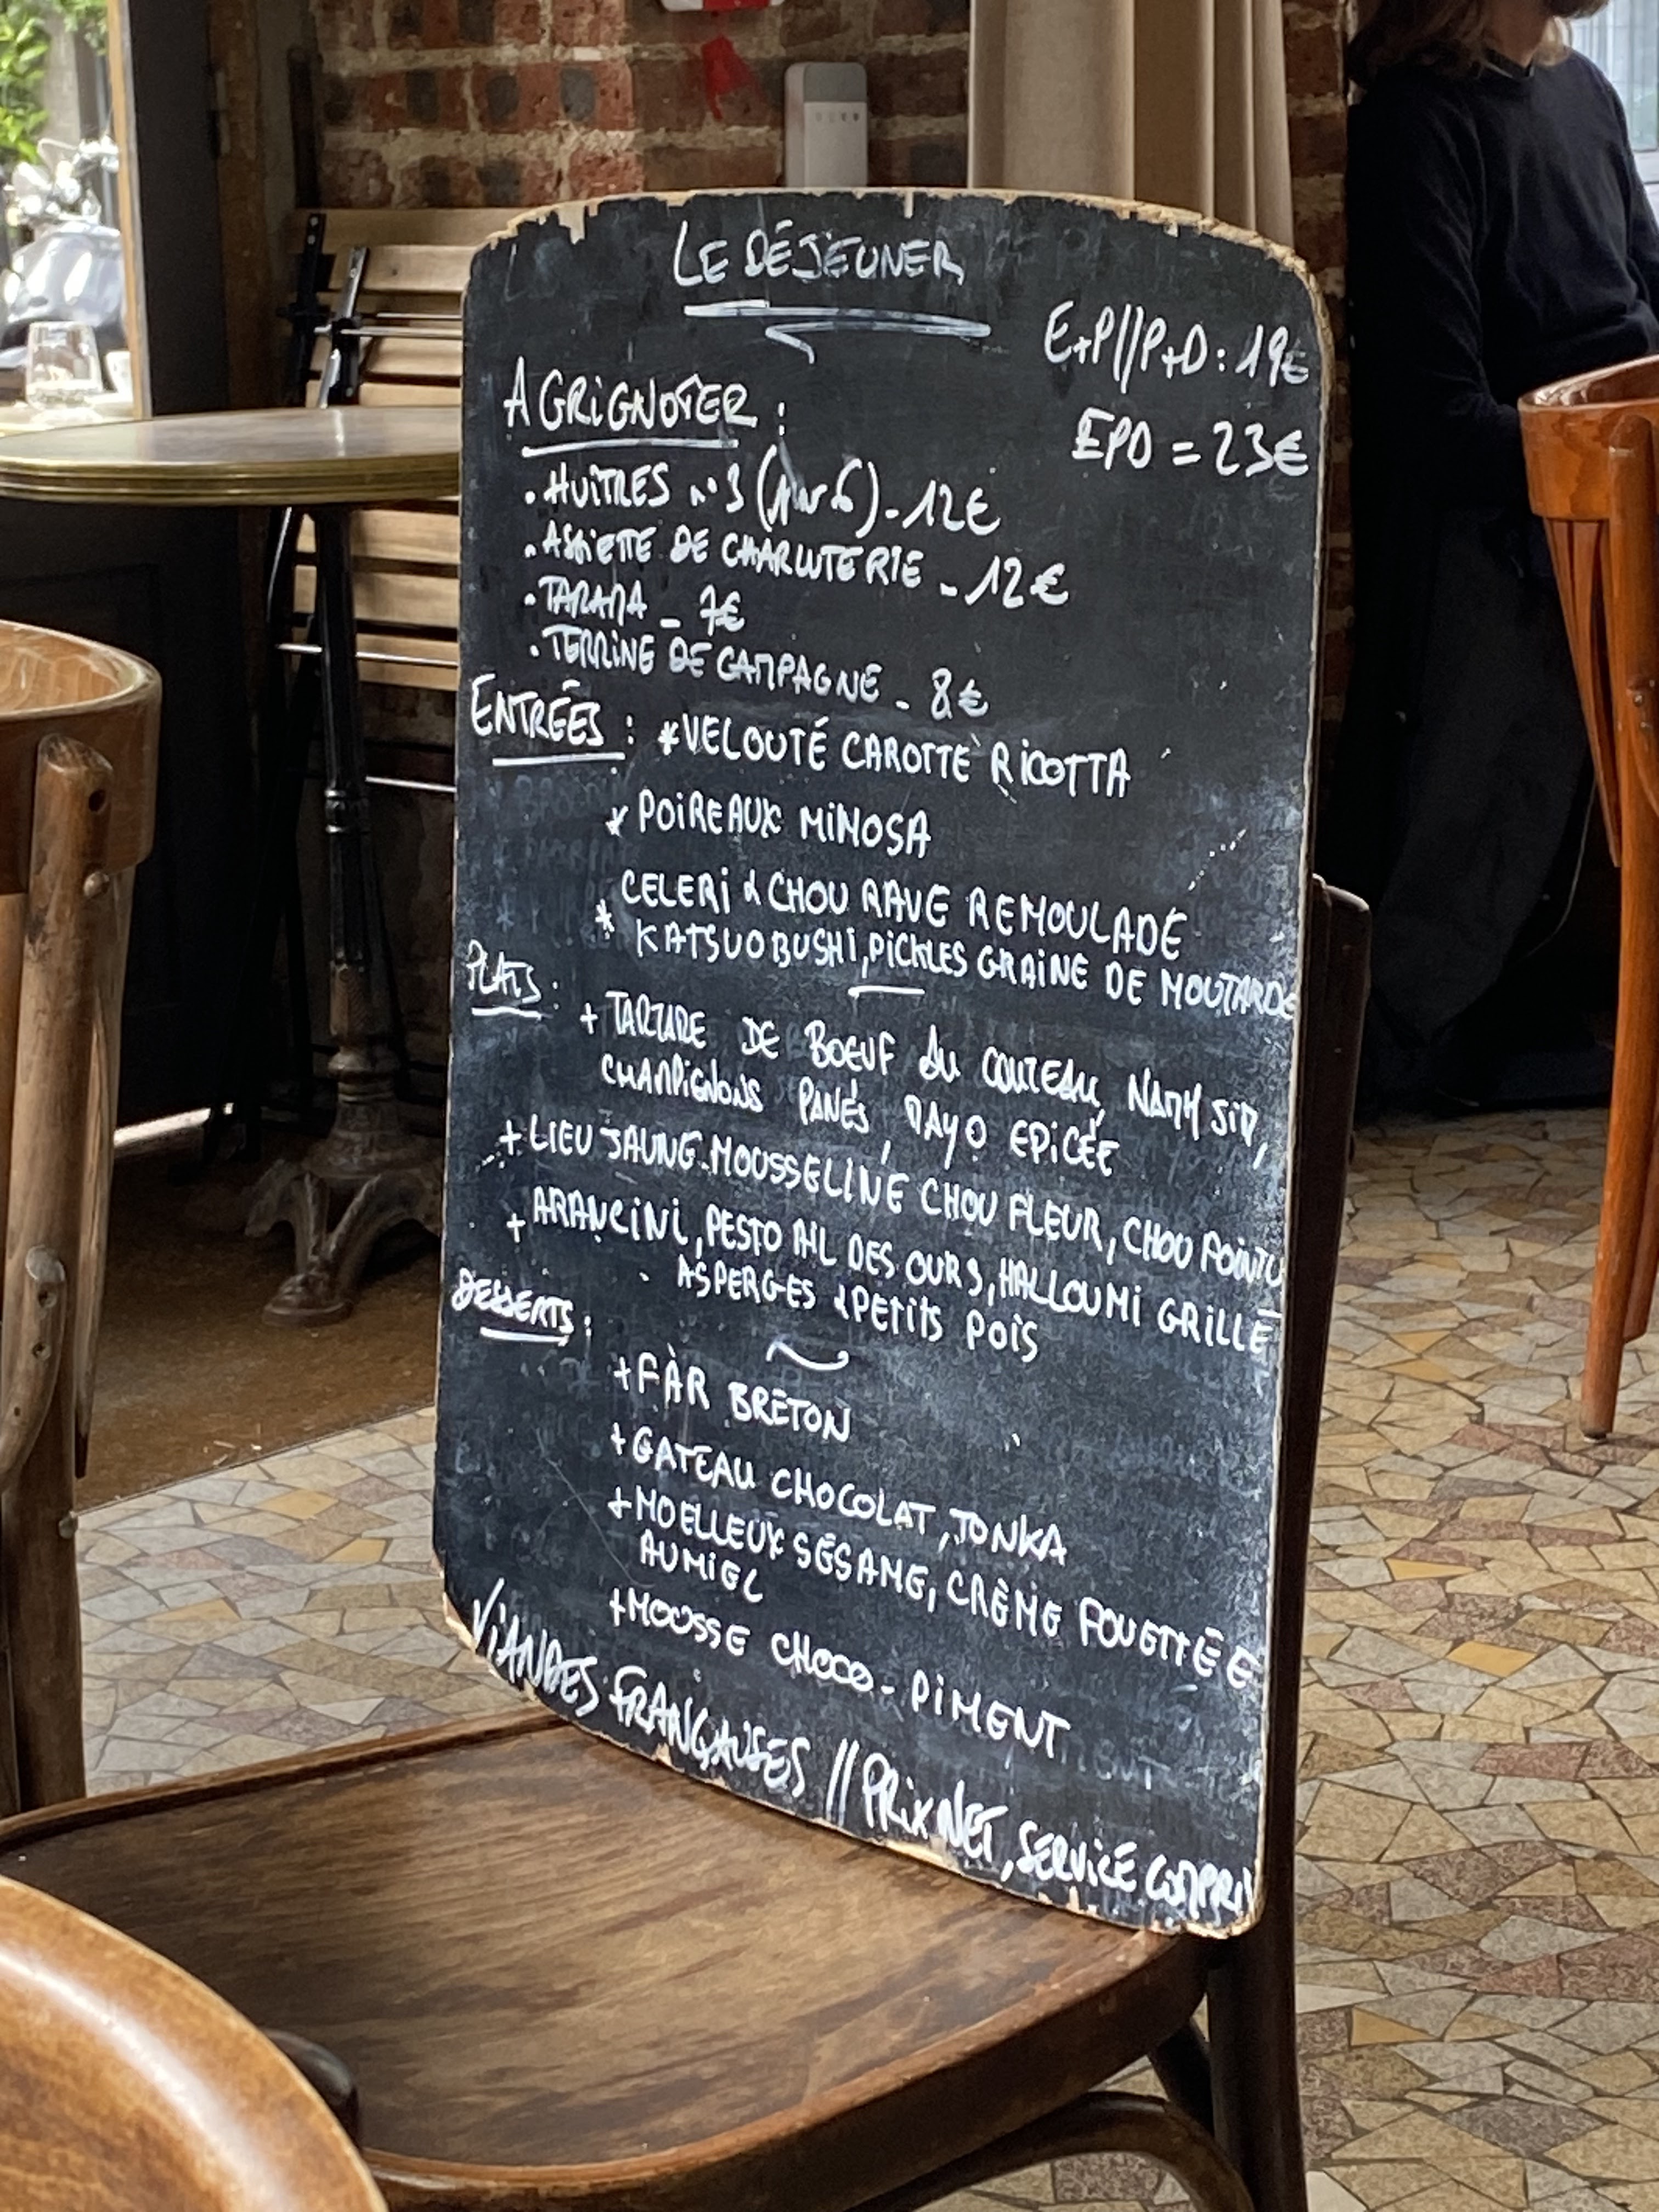 LE DÉJEUNER
E+P//P+D : 19€
EPD = 23€
A GRIGNOTER :
. HUÎTRES n°3 (par 6) - 12€
. ASSIETTE DE CHARCUTERIE - 12€
. TARAMA - 7€
. TERRINE DE CAMPAGNE - 8€
ENTRÉES : * VELOUTÉ CAROTTE RICOTTA
* POIREAUX MIMOSA
* CELERI & CHOU RAVE REMOULADE
KATSUOBUSHI, PICKLES GRAINE DE MOUTARDE
PLATS :
+ TARTARE DE BOEUF AU COUTEAU,
CHAMPIGNONS PANÉS, MAYO EPICÉE
+ LIEU JAUNE - MOUSSELINE CHOU FLEUR, CHOU POINTU
+ ARANCINI, PESTO AIL DES OURS, HALLOUMI GRILLÉ
ASPERGES & PETITS POIS
DESSERTS :
+ FAR BRETON
+ GATEAU CHOCOLAT, TONKA
+ MOELLEUX SÉSAME, CRÈME FOUETTÉE
AU MIEL
+ MOUSSE CHOCO - PIMENT
VIANDES FRANÇAISES // PRIX NET, SERVICE COMPRIS